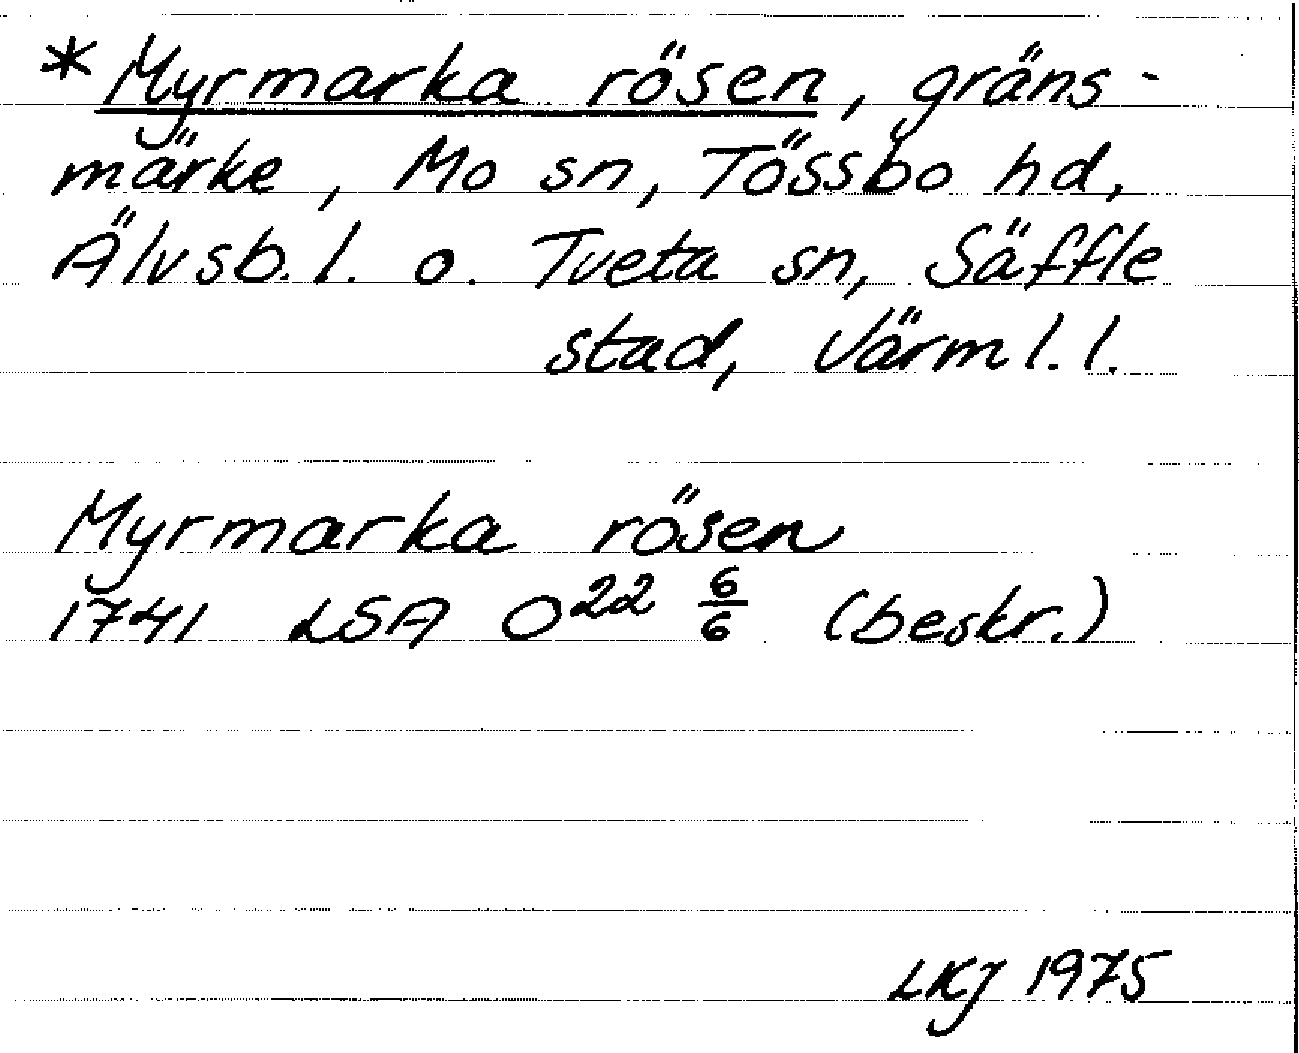 *Myrmarka rösen, gräns-
märke, Mo sn, Tössbo hd,
Älvsb. l. o. Tveta sn, Säffle
stad, Värml. l.
Myrmarka rösen
1741 LSA O²² 6/6 (beskr.)
LKJ 1975